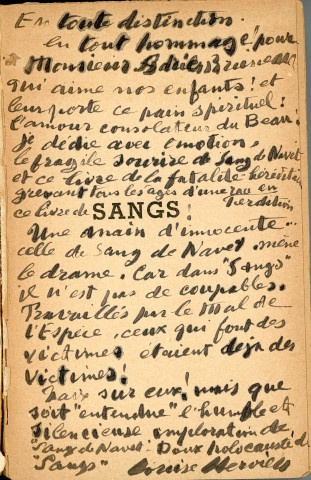 En toute distinction.
en tout hommage! pour
Monsieur
qui aime nos enfants! et
leur porte ce pain spirituel:
l'amour consolateur du Beau!
je dédie avec émotion,
le fragile sourire de Sang de Navet
et ce livre de la fatalité héréditaire
grevant tous les ages d'une
perdition
ce livre de SANGS!
Une main d'innocente...
celle de Sang de Navet. mène
le drame. Car dans "Sangs"
il n'est pas de coupables.
Travaillés par le Mal de
l'Espèce, ceux qui font des
victimes étaient déja des
victimes!
Paix sur eux! mais que
soit "entendue" l'humble et
silencieuse imploration de
"Sang de Navet" Doux holocauste de
"Sangs" Louise Hervieu